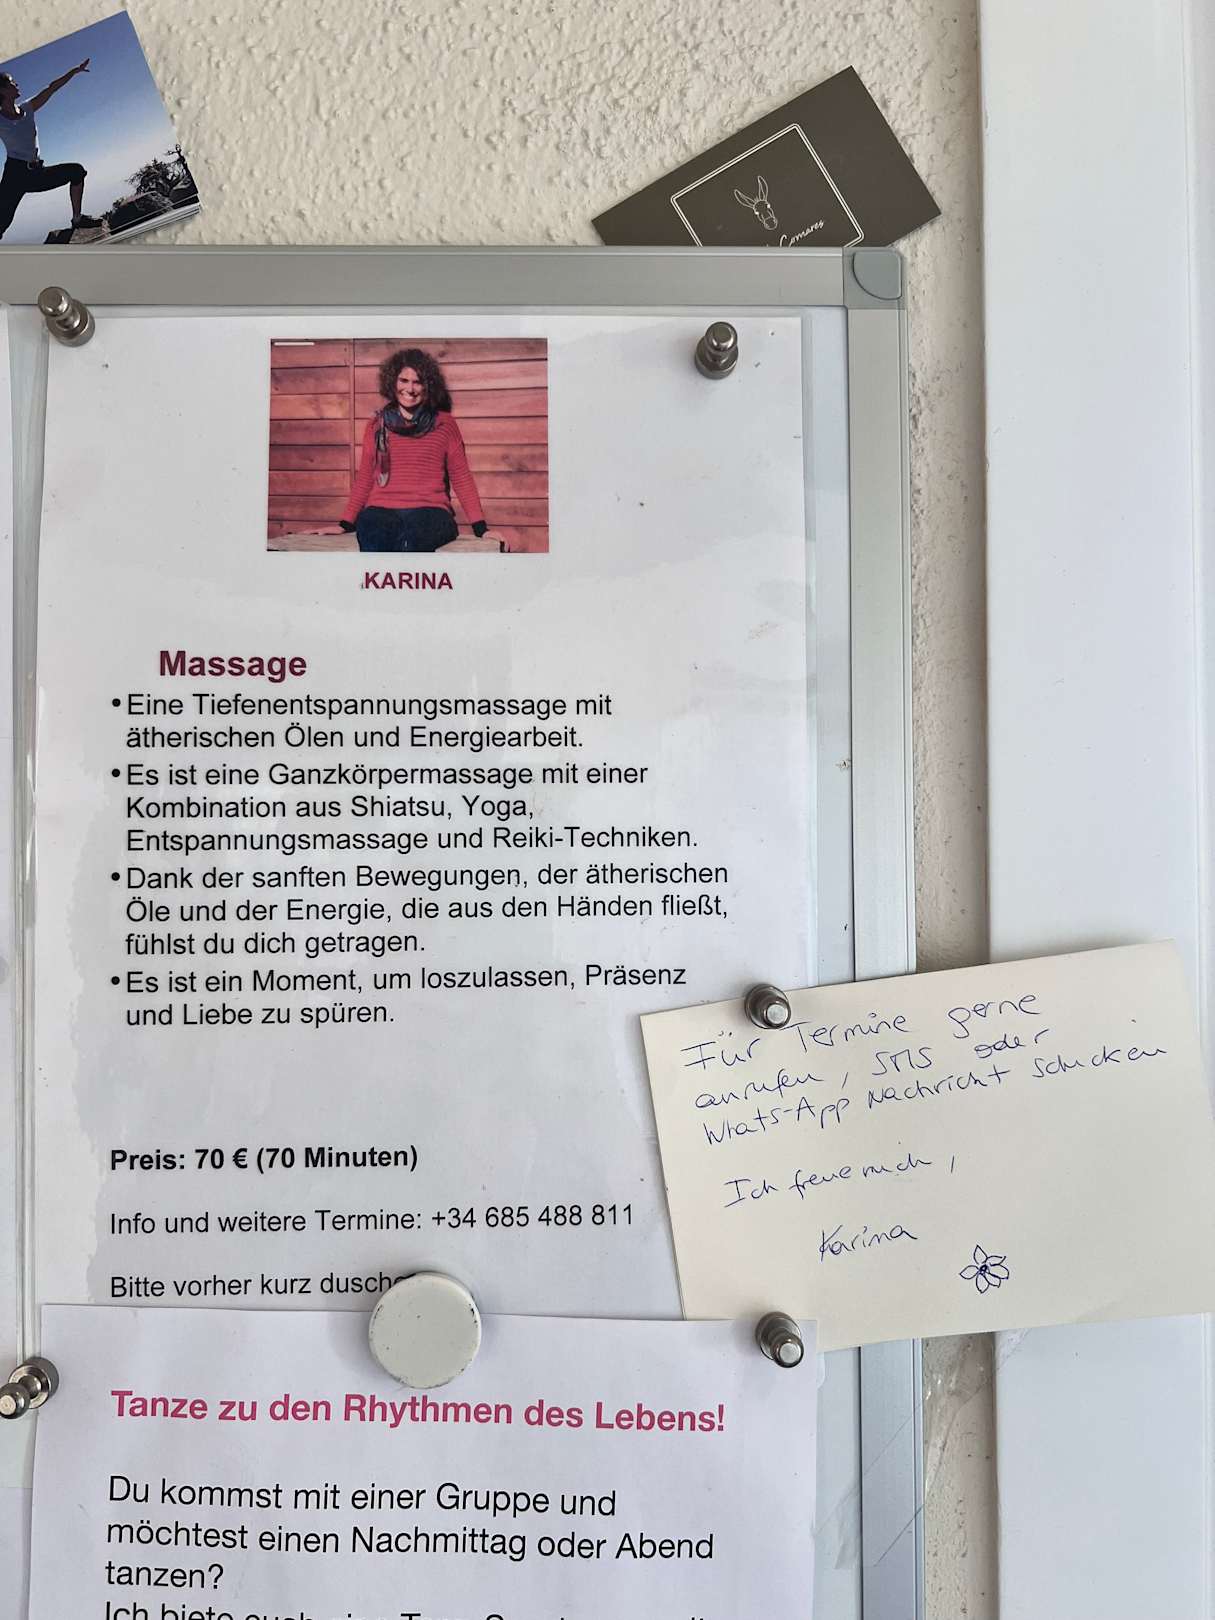 Comares
KARINA
Massage
• Eine Tiefenentspannungsmassage mit
ätherischen Ölen und Energiearbeit.
• Es ist eine Ganzkörpermassage mit einer
Kombination aus Shiatsu, Yoga,
Entspannungsmassage und Reiki-Techniken.
• Dank der sanften Bewegungen, der ätherischen
Öle und der Energie, die aus den Händen fließt,
fühlst du dich getragen.
• Es ist ein Moment, um loszulassen, Präsenz
und Liebe zu spüren.
Preis: 70 € (70 Minuten)
Info und weitere Termine: +34 685 488 811
Bitte vorher kurz dusche
Für Termine gerne
anrufen, SMS oder
Whats-App Nachricht schicken
Ich freue mich,
Karina
Tanze zu den Rhythmen des Lebens!
Du kommst mit einer Gruppe und
möchtest einen Nachmittag oder Abend
tanzen?
Ich biete auch eine